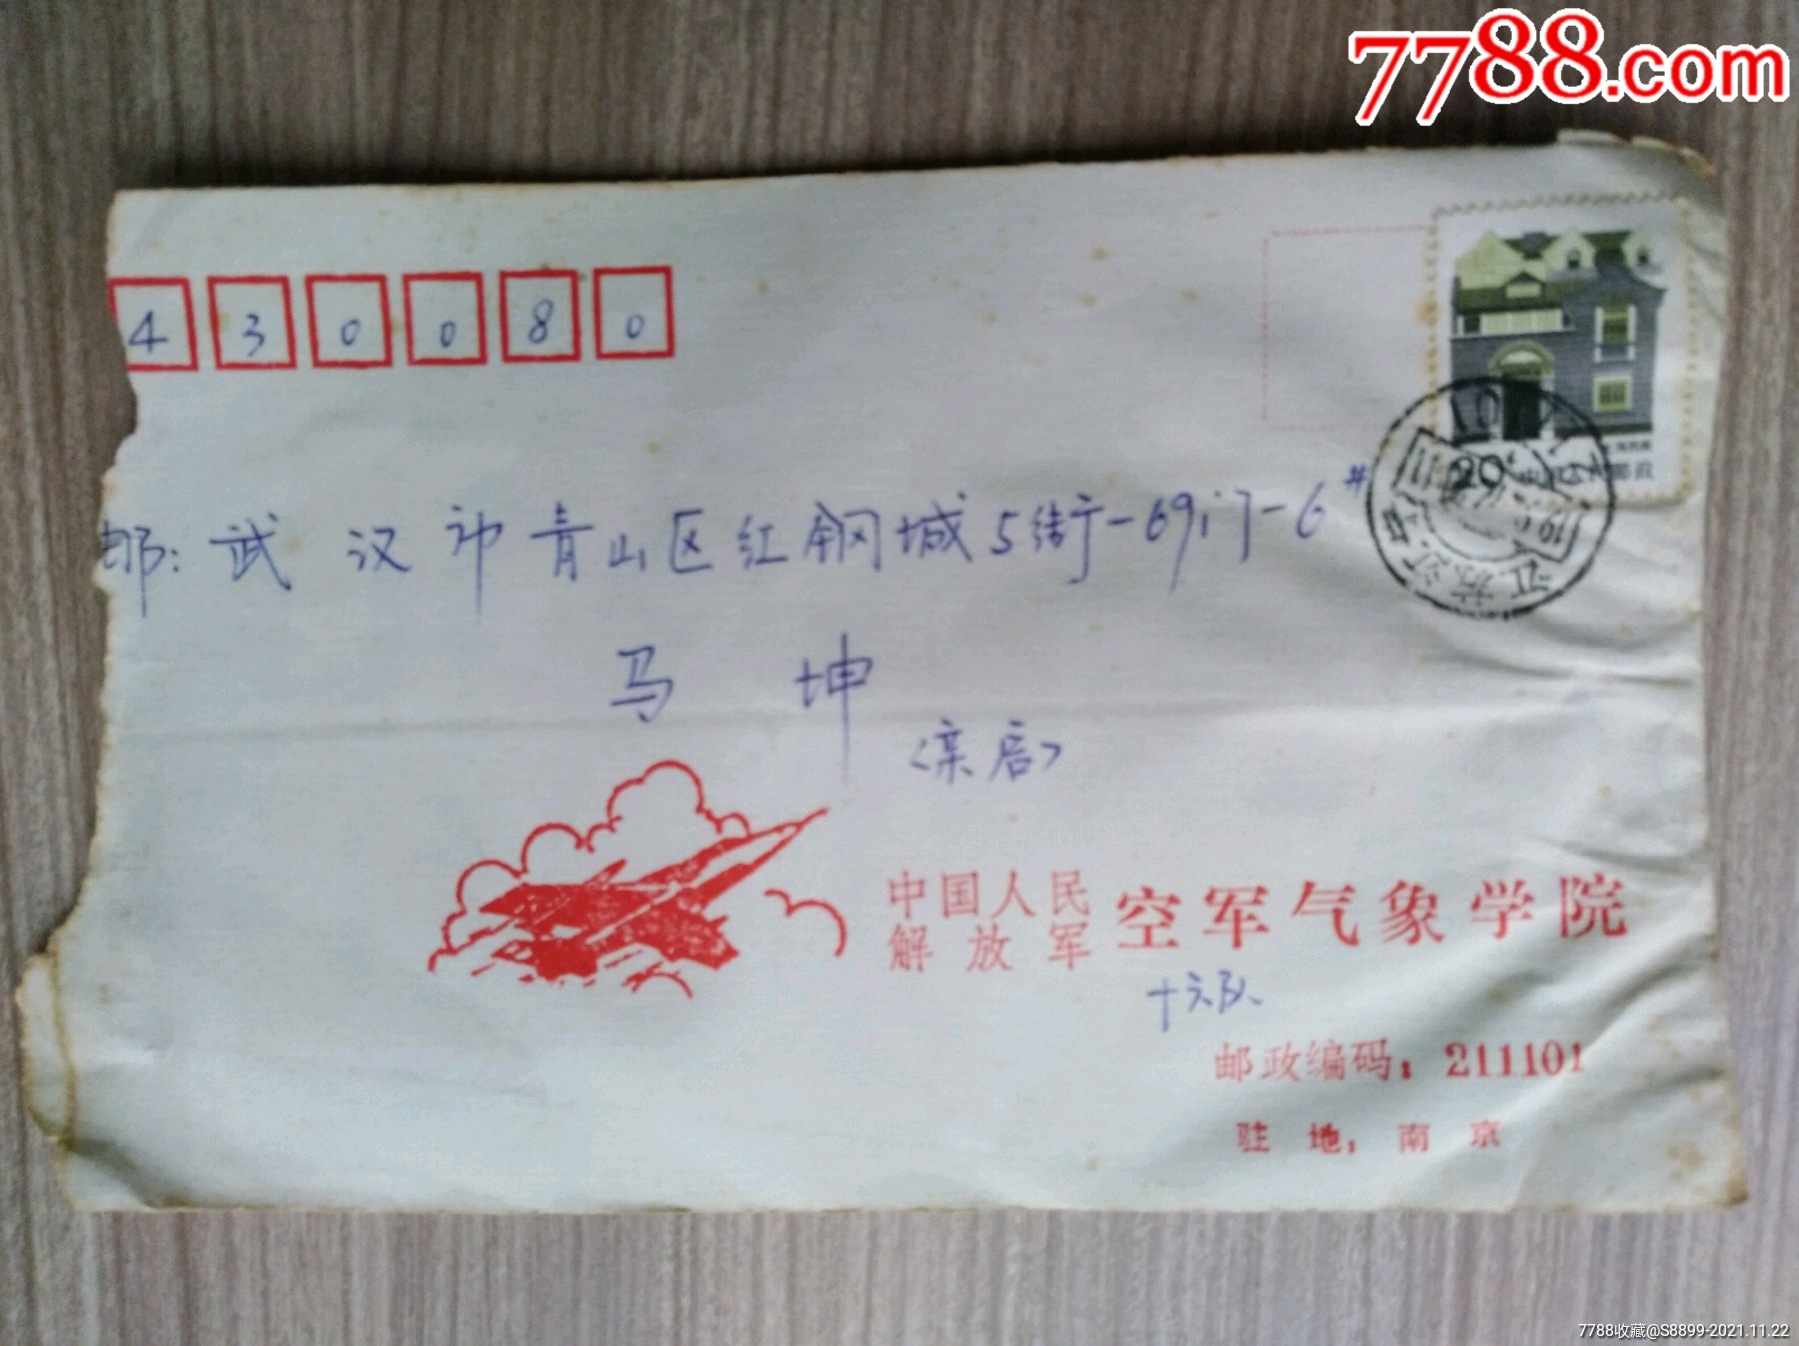 7788.com
430080
邮: 武汉市青山区红钢城5街-69门-6#
马 坤
<亲启>
20
上海民居
中国人民邮政
江苏江
中国人民解放军 空军气象学院
十六队
邮政编码：211101
驻 地：南 京
7788收藏@S8899-2021.11.22